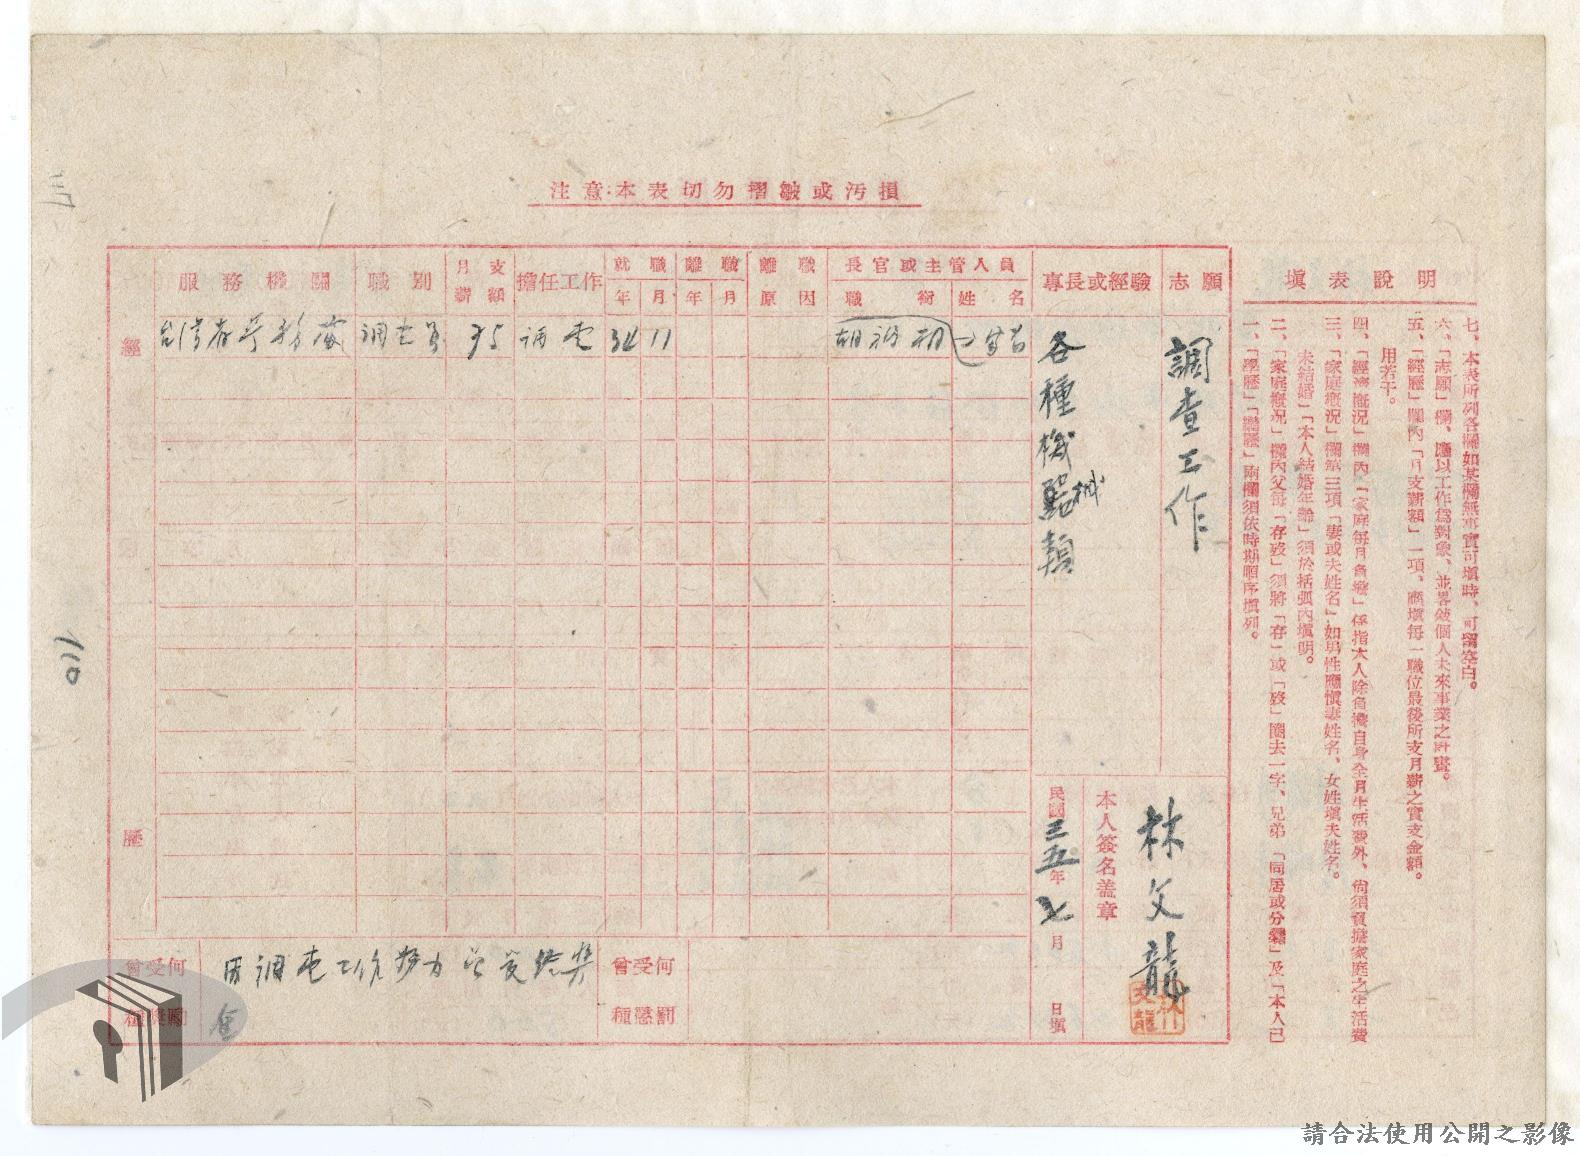 注意:本表切勿摺皺或污損
填表說明
一、「學歷」「經歷」兩欄須依時期順序填列。
二、「家庭概況」欄內父母「存歿」須將「存」或「歿」圈去一字、兄弟「同居或分爨」及「本人已
未結婚」「本人結婚年齡」須於括弧內填明。
三、「家庭概況」欄第三項「妻或夫姓名」如男性應填妻姓名、女姓填夫姓名。
四、「經濟概況」欄內「家庭每月負擔」係指本人除負擔自身全月生活費外、尙須負擔家庭之生活費
用若干。
五、「經歷」欄內「月支薪額」一項、應填每一職位最後所支月薪之實支金額。
六、「志願」欄、應以工作爲對象、並畧敍個人未來事業之計畫。
七、本表所列各欄如某欄無事實可填時、可留空白。
志願
調查工作
專長或經驗
各種機械駕駛
長官或主管人員
職銜
姓名
離職原因
離職
年
月
就職
年
月
擔任工作
月支薪額
職別
服務機關
經歷
調查員
95
調查
34
11
本人簽名蓋章
林文龍
民國三五年七月 日填
曾受何種獎勵
因調查工作努力
曾受何種懲罰
110
請合法使用公開之影像